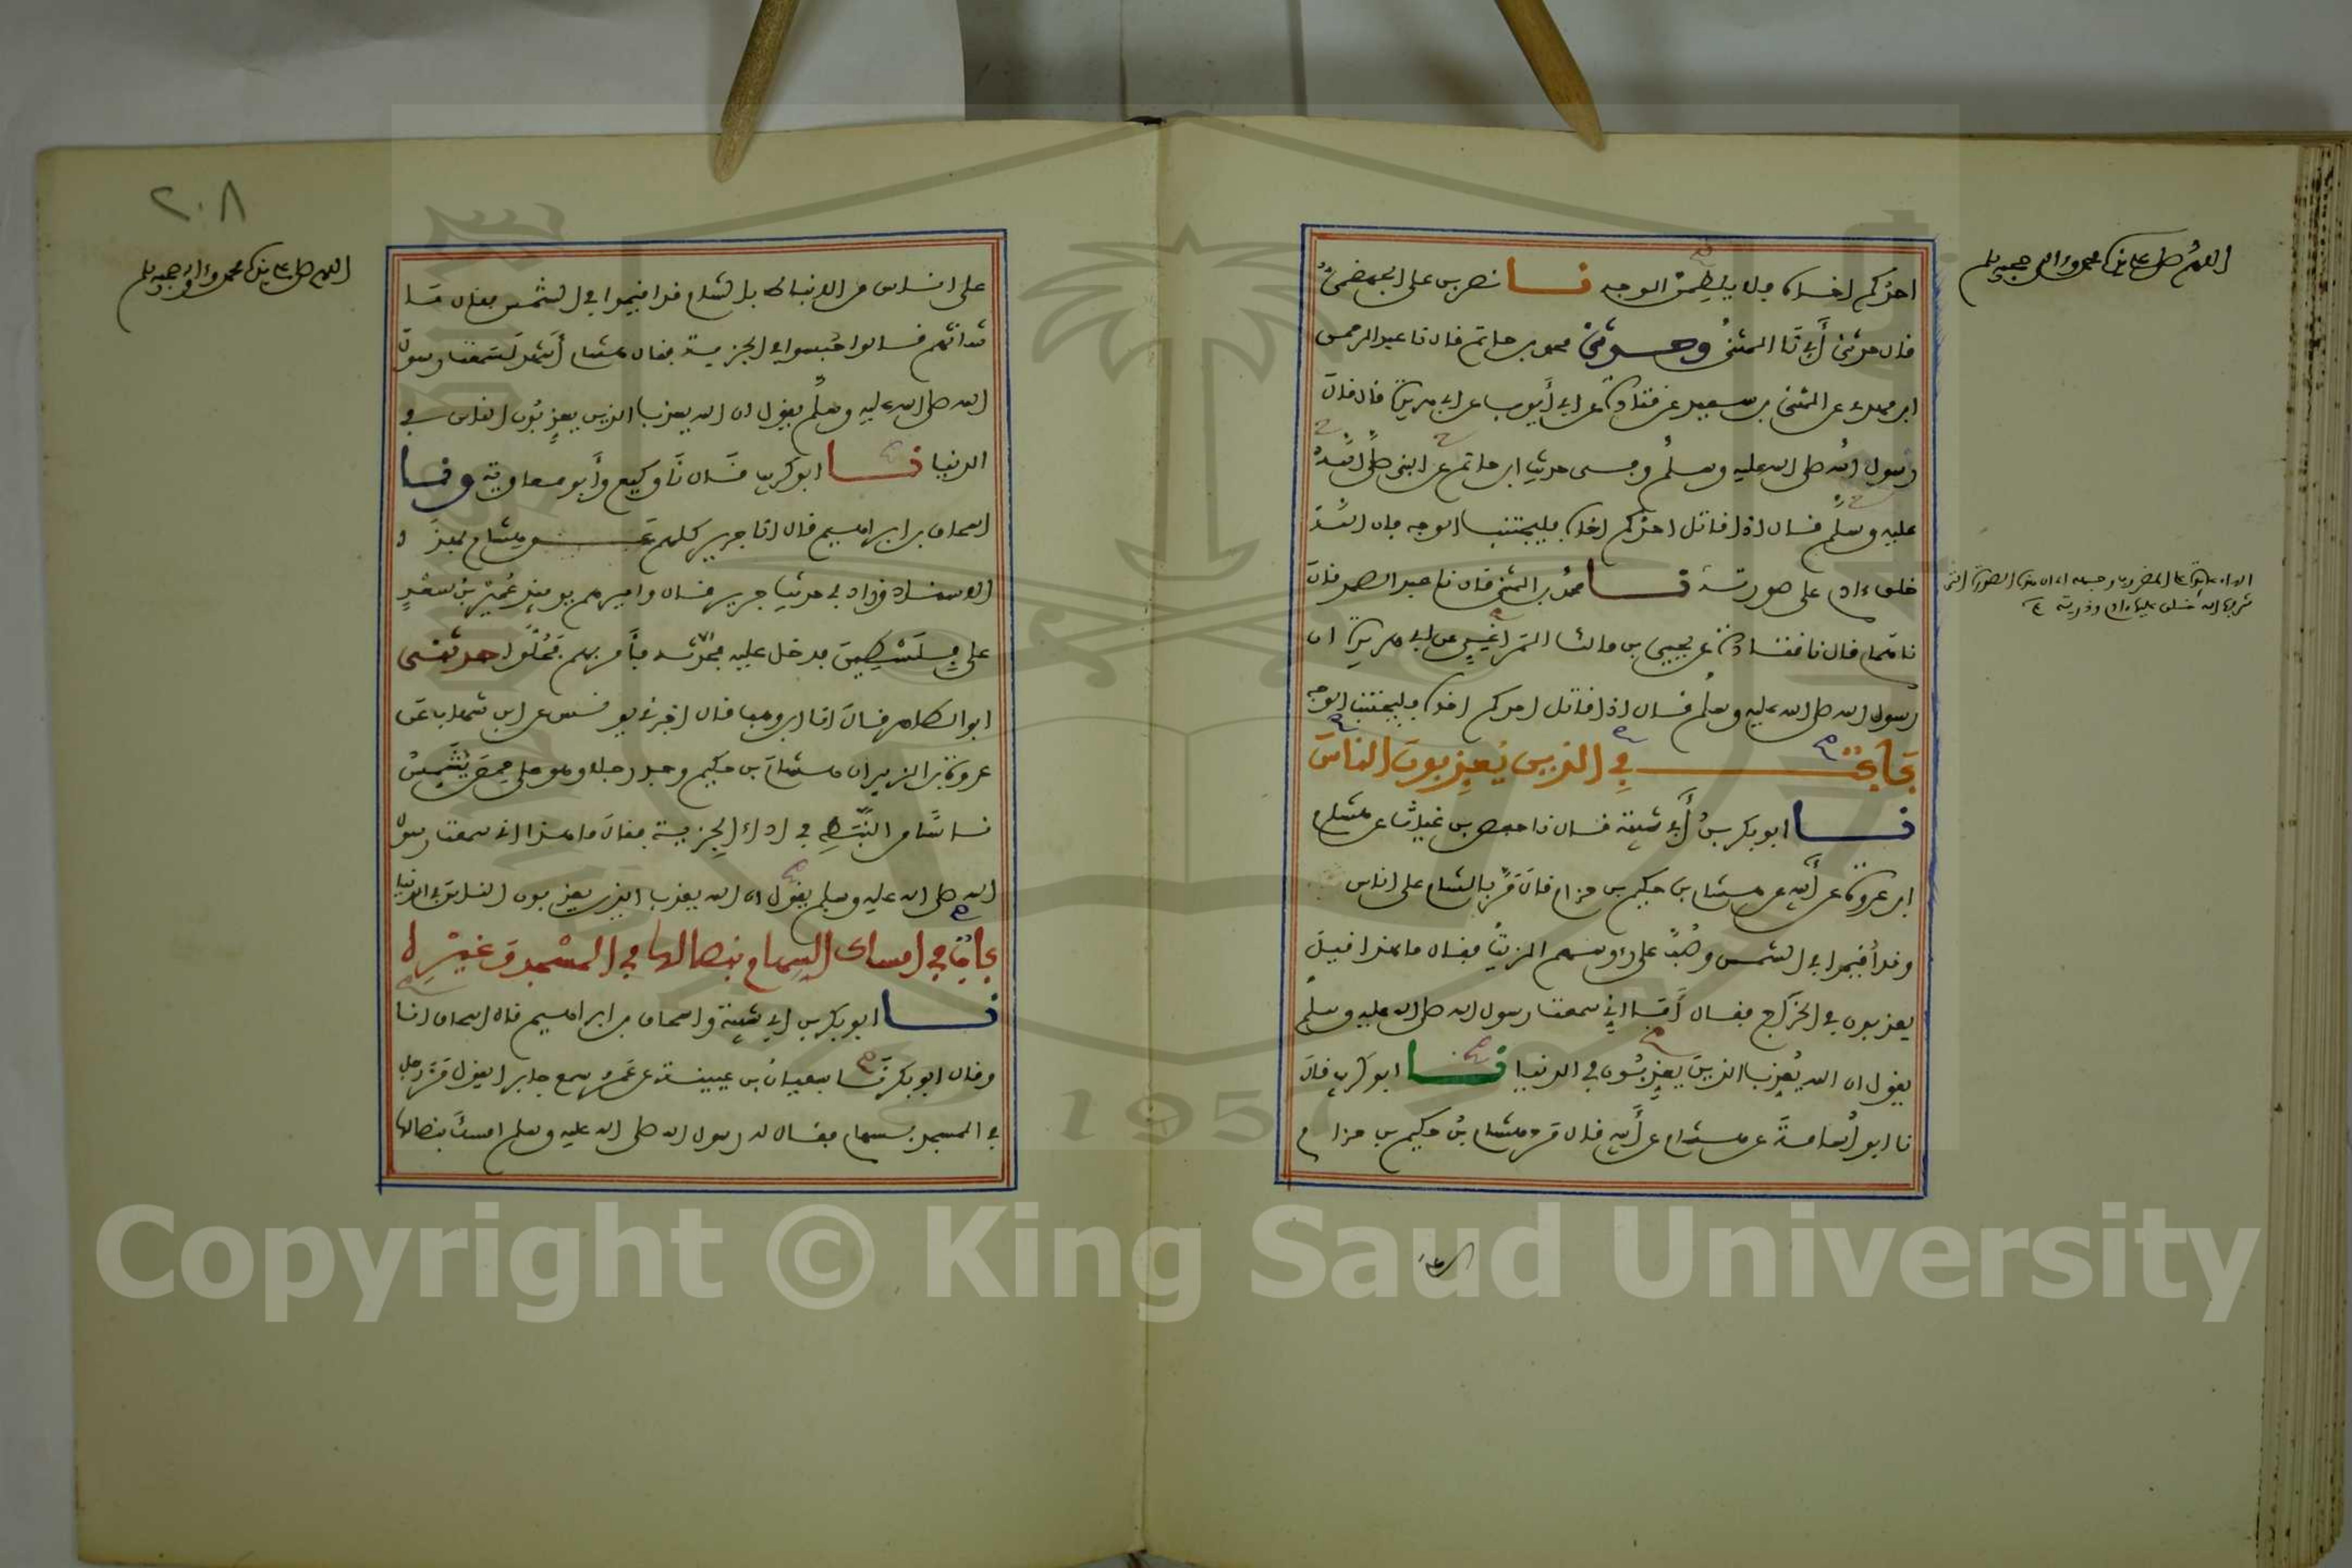 اللهم صل على سيدنا محمد وءاله وصحبه وسلم
احدكم اخاه فلا يلطمن الوجه نا نصر بن علي الجهضمي
قال حدثني أبي نا المثنى وحدثني محمد بن حاتم قال نا عبد الرحمن
ابن مهدي عن المثنى بن سعيد عن قتادة عن ابي أيوب عن ابي هريرة قال قال
رسول الله صلى الله عليه وسلم وفي حديث ابن حاتم عن النبي صلى الله
عليه وسلم قال اذا قاتل احدكم اخاه فليجتنب الوجه فان الله
خلق ءادم على صورته نا محمد بن المثنى قال نا عبد الصمد قال
نا همام قال نا قتادة عن يحيى بن مالك المراغي عن ابي هريرة ان
رسول الله صلى الله عليه وسلم قال اذا قاتل احدكم اخاه فليجتنب الوجه
باب في الذين يعذبون الناس
نا ابو بكر بن أبي شيبة قال نا حفص بن غياث عن هشام
ابن عروة عن أبيه عن هشام بن حكيم بن حزام قال مر بالشام على اناس
وقد أقيموا في الشمس وصب على رءوسهم الزيت فقال ما هذا قيل
يعذبون في الخراج فقال أما اني سمعت رسول الله صلى الله عليه وسلم
يقول ان الله يعذب الذين يعذبون في الدنيا نا ابو كريب قال
نا ابو أسامة عن هشام عن أبيه قال مر هشام بن حكيم بن حزام
على
٢٠٨
اللهم صل على سيدنا محمد وءاله وصحبه وسلم
على اناس من الانباط بالشام قد اقيموا في الشمس فقال ما
شانهم قالوا حبسوا في الجزية فقال هشام أشهد لسمعت رسول
الله صلى الله عليه وسلم يقول ان الله يعذب الذين يعذبون الناس في
الدنيا نا ابو كريب قال نا وكيع وأبو معاوية ونا
اسحاق بن ابراهيم قال انا جرير كلهم عن هشام بهذا
الاسناد وزاد في حديث جرير قال واميرهم يومئذ عمير بن سعد
على فلسطين فدخل عليه فحدثه فأمر بهم فخلوا حدثني
ابو الطاهر قال انا ابن وهب قال اخبرني يونس عن ابن شهاب عن
عروة بن الزبير ان هشام بن حكيم وجد رجلا وهو على حمص يشمس
ناسا من النبط في اداء الجزية فقال ما هذا اني سمعت رسول
الله صلى الله عليه وسلم يقول ان الله يعذب الذين يعذبون الناس في الدنيا
باب في امساك السهام بنصالها في المسجد وغيره
نا ابو بكر بن ابي شيبة واسحاق بن ابراهيم قال اسحاق انا
وقال ابو بكر نا سفيان بن عيينة عن عمرو سمع جابرا يقول مر رجل
في المسجد بسهام فقال له رسول الله صلى الله عليه وسلم امسك بنصالها
1957
Copyright © King Saud University